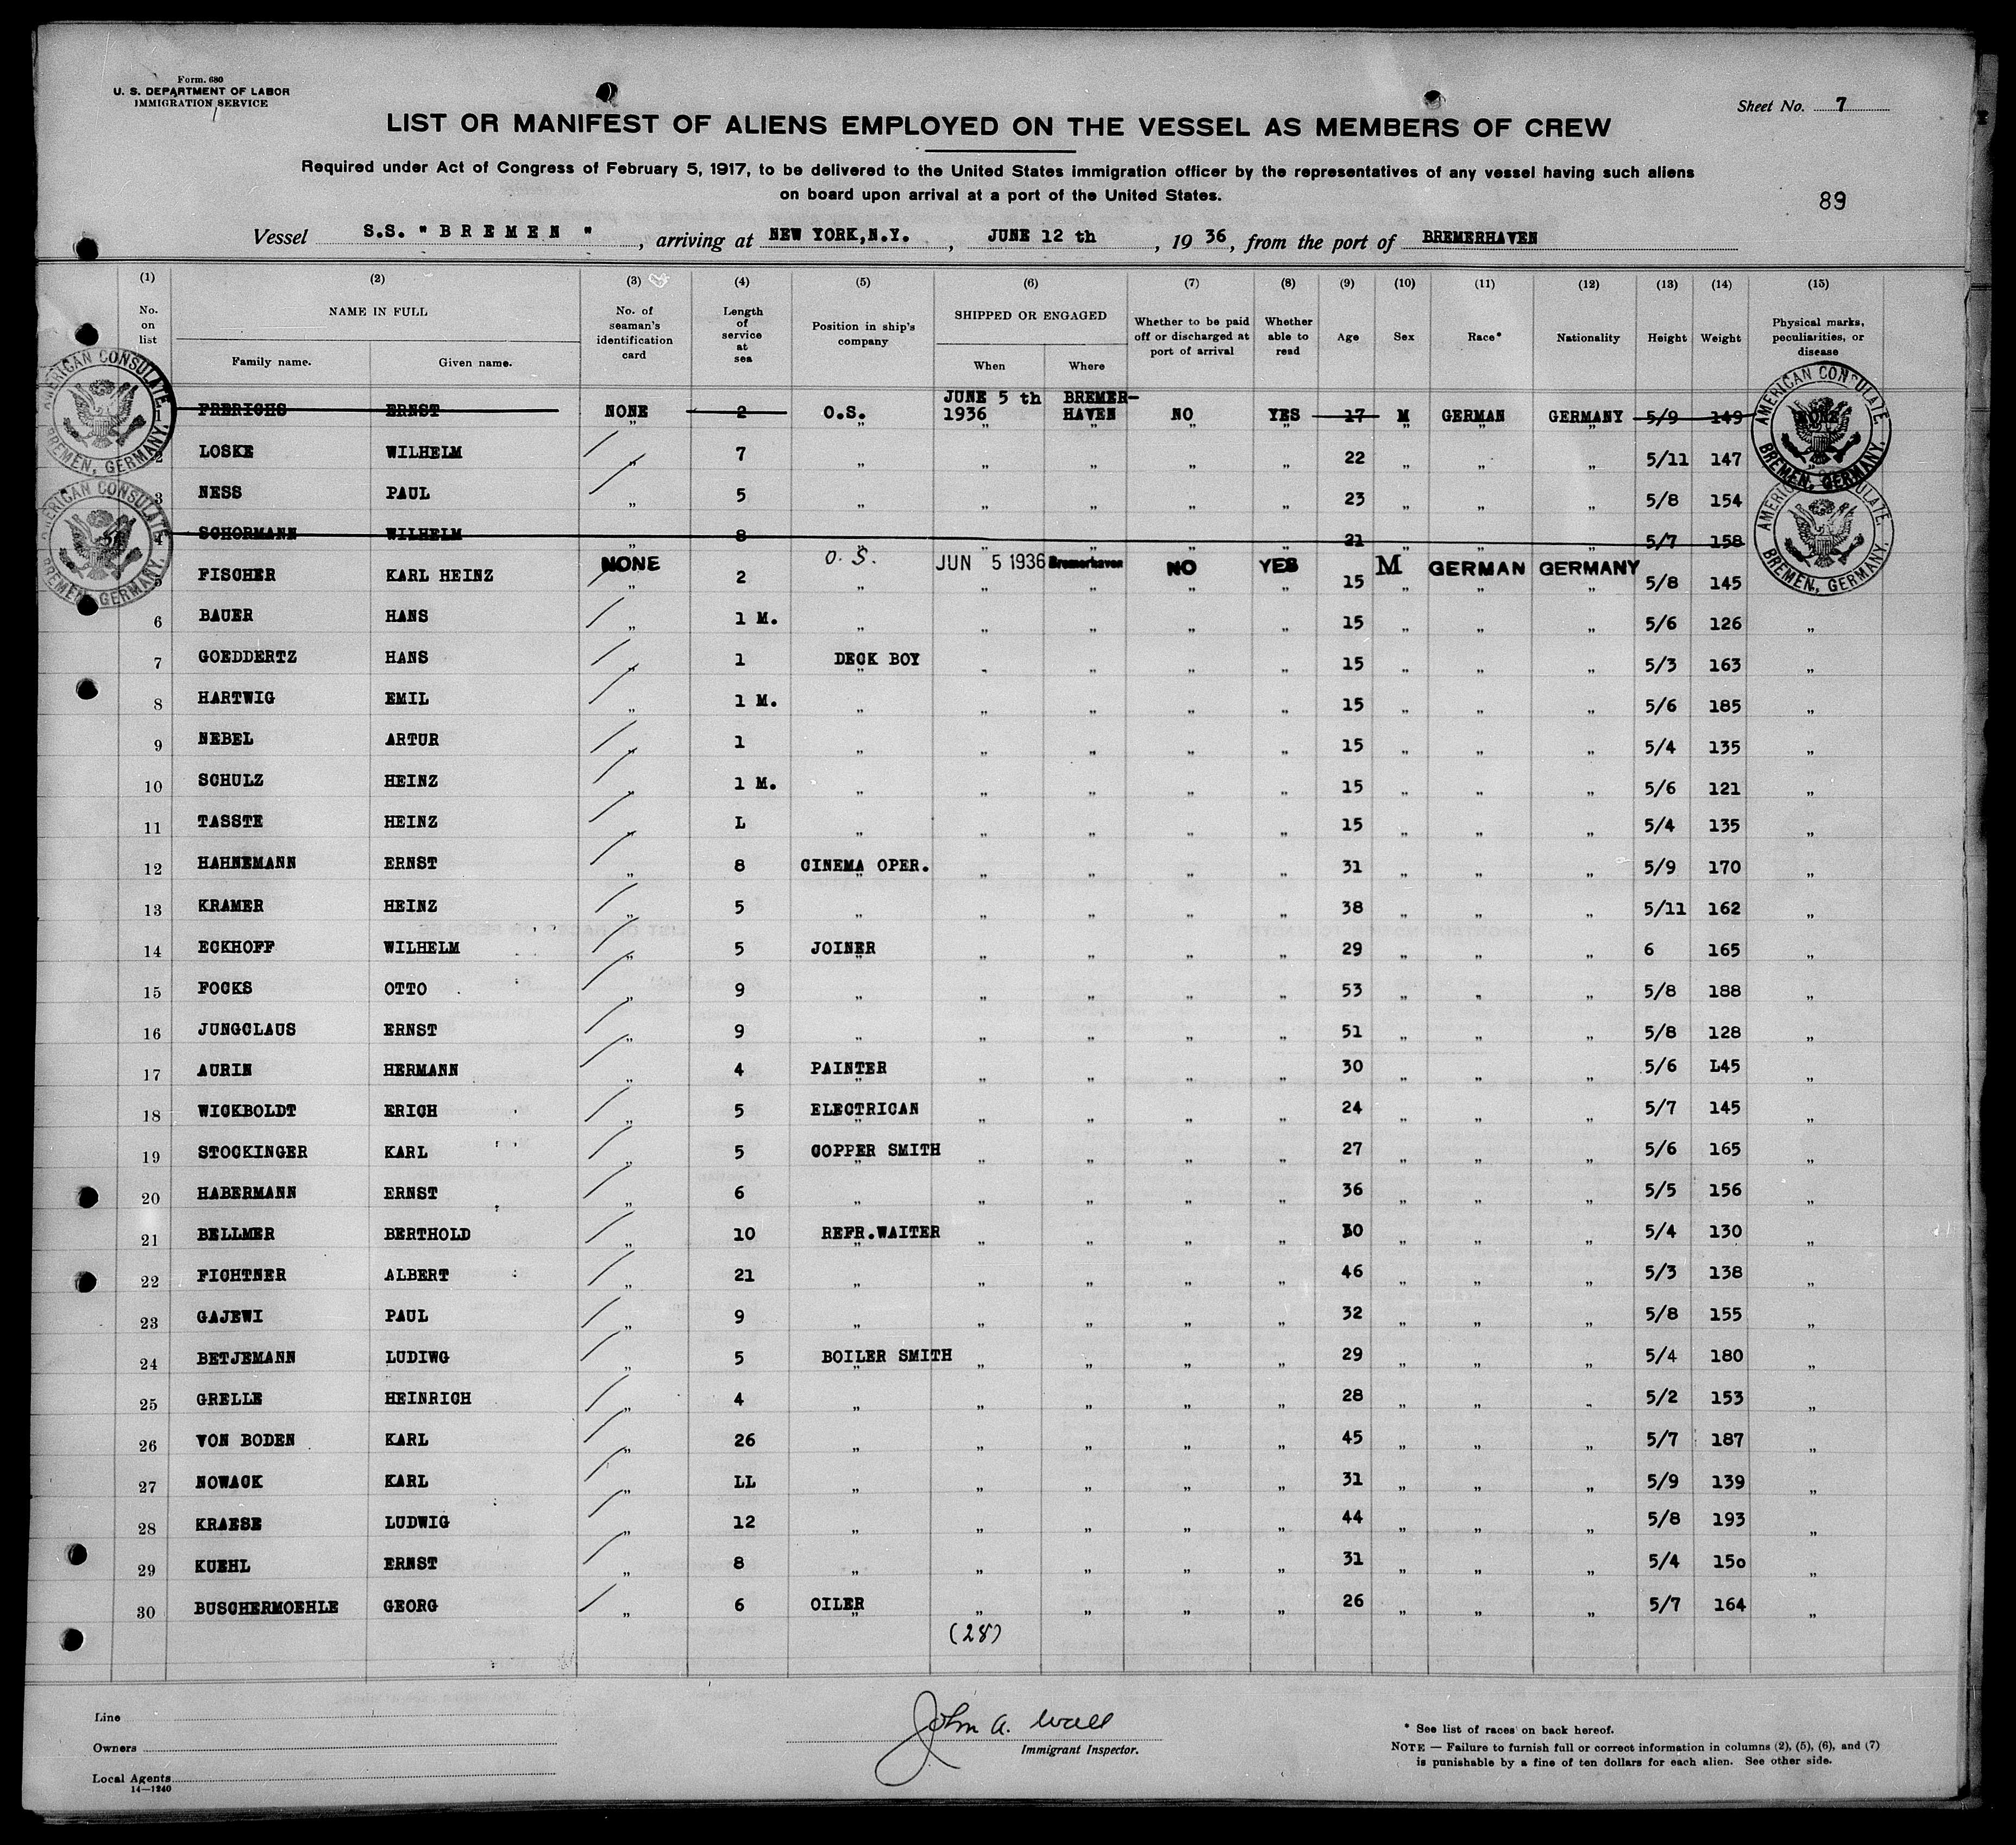 Form. 680
U. S. DEPARTMENT OF LABOR
IMMIGRATION SERVICE
Sheet No. 7
LIST OR MANIFEST OF ALIENS EMPLOYED ON THE VESSEL AS MEMBERS OF CREW
Required under Act of Congress of February 5, 1917, to be delivered to the United States immigration officer by the representatives of any vessel having such aliens
on board upon arrival at a port of the United States.
89
Vessel S.S. "BREMEN", arriving at NEW YORK,N.Y., JUNE 12 th, 19 36, from the port of BREMERHAVEN
(1) (2) (3) (4) (5) (6) (7) (8) (9) (10) (11) (12) (13) (14) (15)
No. on list
NAME IN FULL
Family name. Given name.
No. of seaman's identification card
Length of service at sea
Position in ship's company
SHIPPED OR ENGAGED
When Where
Whether to be paid off or discharged at port of arrival
Whether able to read
Age
Sex
Race*
Nationality
Height
Weight
Physical marks, peculiarities, or disease
AMERICAN CONSULATE, BREMEN, GERMANY.
AMERICAN CONSULATE, BREMEN, GERMANY.
AMERICAN CONSULATE, BREMEN, GERMANY.
AMERICAN CONSULATE, BREMEN, GERMANY.
1 FRERICHS ERNST NONE 2 O.S. JUNE 5 th 1936 BREMER-HAVEN NO YES 17 M GERMAN GERMANY 5/9 149 NONE
2 LOSKE WILHELM „ 7 „ „ „ „ „ 22 „ „ „ 5/11 147 „
3 NESS PAUL „ 5 „ „ „ „ „ 23 „ „ „ 5/8 154
4 SCHORMANN WILHELM „ 8 „ „ „ „ „ 21 „ „ „ 5/7 158
NONE O. S. JUN 5 1936 Bremerhaven NO YES M GERMAN GERMANY
5 FISCHER KARL HEINZ „ 2 „ „ „ „ „ 15 „ „ „ 5/8 145
6 BAUER HANS „ 1 M. „ „ „ „ „ 15 „ „ „ 5/6 126 „
7 GOEDDERTZ HANS „ 1 DECK BOY „ „ „ „ 15 „ „ „ 5/3 163 „
8 HARTWIG EMIL „ 1 M. „ „ „ „ „ 15 „ „ „ 5/6 185 „
9 NEBEL ARTUR „ 1 „ „ „ „ „ 15 „ „ „ 5/4 135 „
10 SCHULZ HEINZ „ 1 M. „ „ „ „ „ 15 „ „ „ 5/6 121 „
11 TASSTE HEINZ „ L „ „ „ „ „ 15 „ „ „ 5/4 135 „
12 HAHNEMANN ERNST „ 8 CINEMA OPER. „ „ „ „ 31 „ „ „ 5/9 170 „
13 KRAMER HEINZ „ 5 „ „ „ „ „ 38 „ „ „ 5/11 162 „
14 ECKHOFF WILHELM „ 5 JOINER „ „ „ „ 29 „ „ „ 6 165 „
15 FOCKS OTTO „ 9 „ „ „ „ „ 53 „ „ „ 5/8 188 „
16 JUNGCLAUS ERNST „ 9 „ „ „ „ „ 51 „ „ „ 5/8 128 „
17 AURIN HERMANN „ 4 PAINTER „ „ „ „ 30 „ „ „ 5/6 L45 „
18 WICKBOLDT ERICH „ 5 ELECTRICAN „ „ „ „ 24 „ „ „ 5/7 145 „
19 STOCKINGER KARL „ 5 COPPER SMITH „ „ „ „ 27 „ „ „ 5/6 165 „
20 HABERMANN ERNST „ 6 „ „ „ „ „ 36 „ „ „ 5/5 156 „
21 BELLMER BERTHOLD „ 10 REFR.WAITER „ „ „ „ 30 „ „ „ 5/4 130 „
22 FICHTNER ALBERT „ 21 „ „ „ „ „ 46 „ „ „ 5/3 138 „
23 GAJEWI PAUL „ 9 „ „ „ „ „ 32 „ „ „ 5/8 155 „
24 BETJEMANN LUDIWG „ 5 BOILER SMITH „ „ „ „ 29 „ „ „ 5/4 180 „
25 GRELLE HEINRICH „ 4 „ „ „ „ „ 28 „ „ „ 5/2 153 „
26 VON BODEN KARL „ 26 „ „ „ „ „ 45 „ „ „ 5/7 187 „
27 NOWACK KARL „ LL „ „ „ „ „ 31 „ „ „ 5/9 139 „
28 KRAESE LUDWIG „ 12 „ „ „ „ „ 44 „ „ „ 5/8 193 „
29 KUEHL ERNST „ 8 „ „ „ „ „ 31 „ „ „ 5/4 15o „
30 BUSCHERMOEHLE GEORG „ 6 OILER „ „ „ „ 26 „ „ „ 5/7 164 „
(28)
Line
Owners
Local Agents
14—1240
John A. Wall
Immigrant Inspector.
* See list of races on back hereof.
NOTE — Failure to furnish full or correct information in columns (2), (5), (6), and (7)
is punishable by a fine of ten dollars for each alien. See other side.